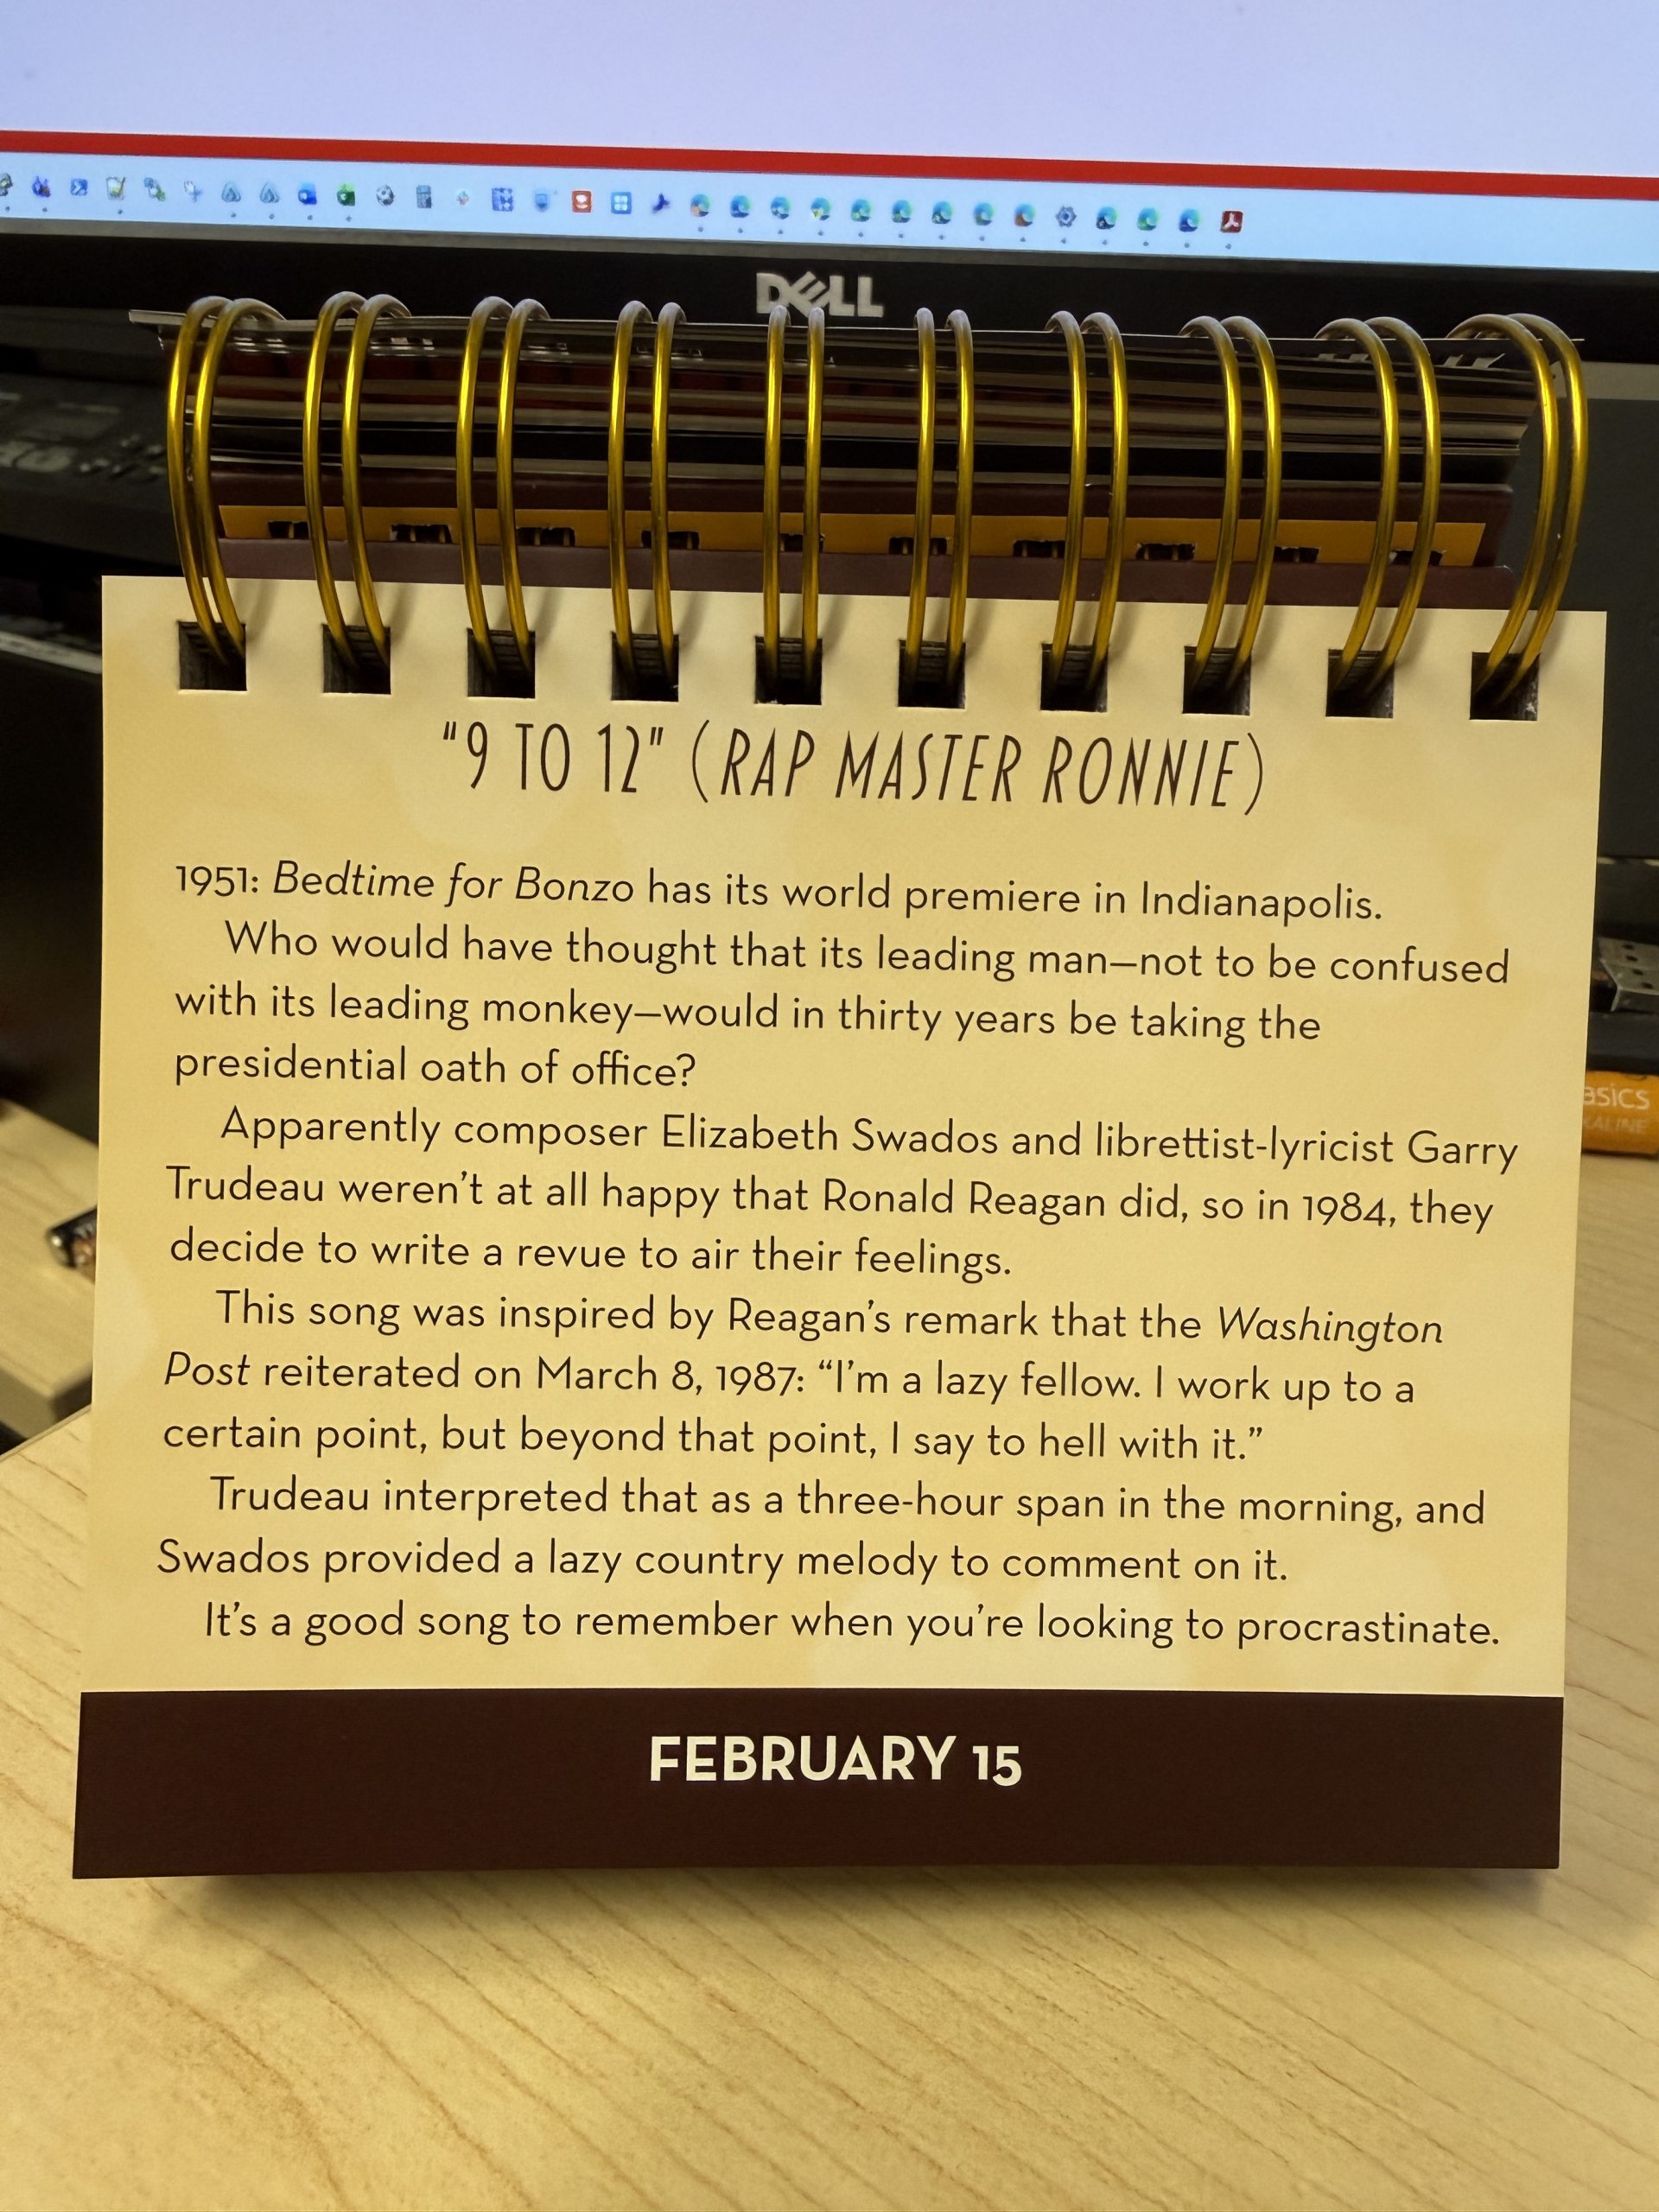 DELL
"9 TO 12" (RAP MASTER RONNIE)
1951: Bedtime for Bonzo has its world premiere in Indianapolis.
Who would have thought that its leading man—not to be confused
with its leading monkey—would in thirty years be taking the
presidential oath of office?
Apparently composer Elizabeth Swados and librettist-lyricist Garry
Trudeau weren’t at all happy that Ronald Reagan did, so in 1984, they
decide to write a revue to air their feelings.
This song was inspired by Reagan’s remark that the Washington
Post reiterated on March 8, 1987: “I’m a lazy fellow. I work up to a
certain point, but beyond that point, I say to hell with it.”
Trudeau interpreted that as a three-hour span in the morning, and
Swados provided a lazy country melody to comment on it.
It’s a good song to remember when you’re looking to procrastinate.
FEBRUARY 15
asics
KALINE